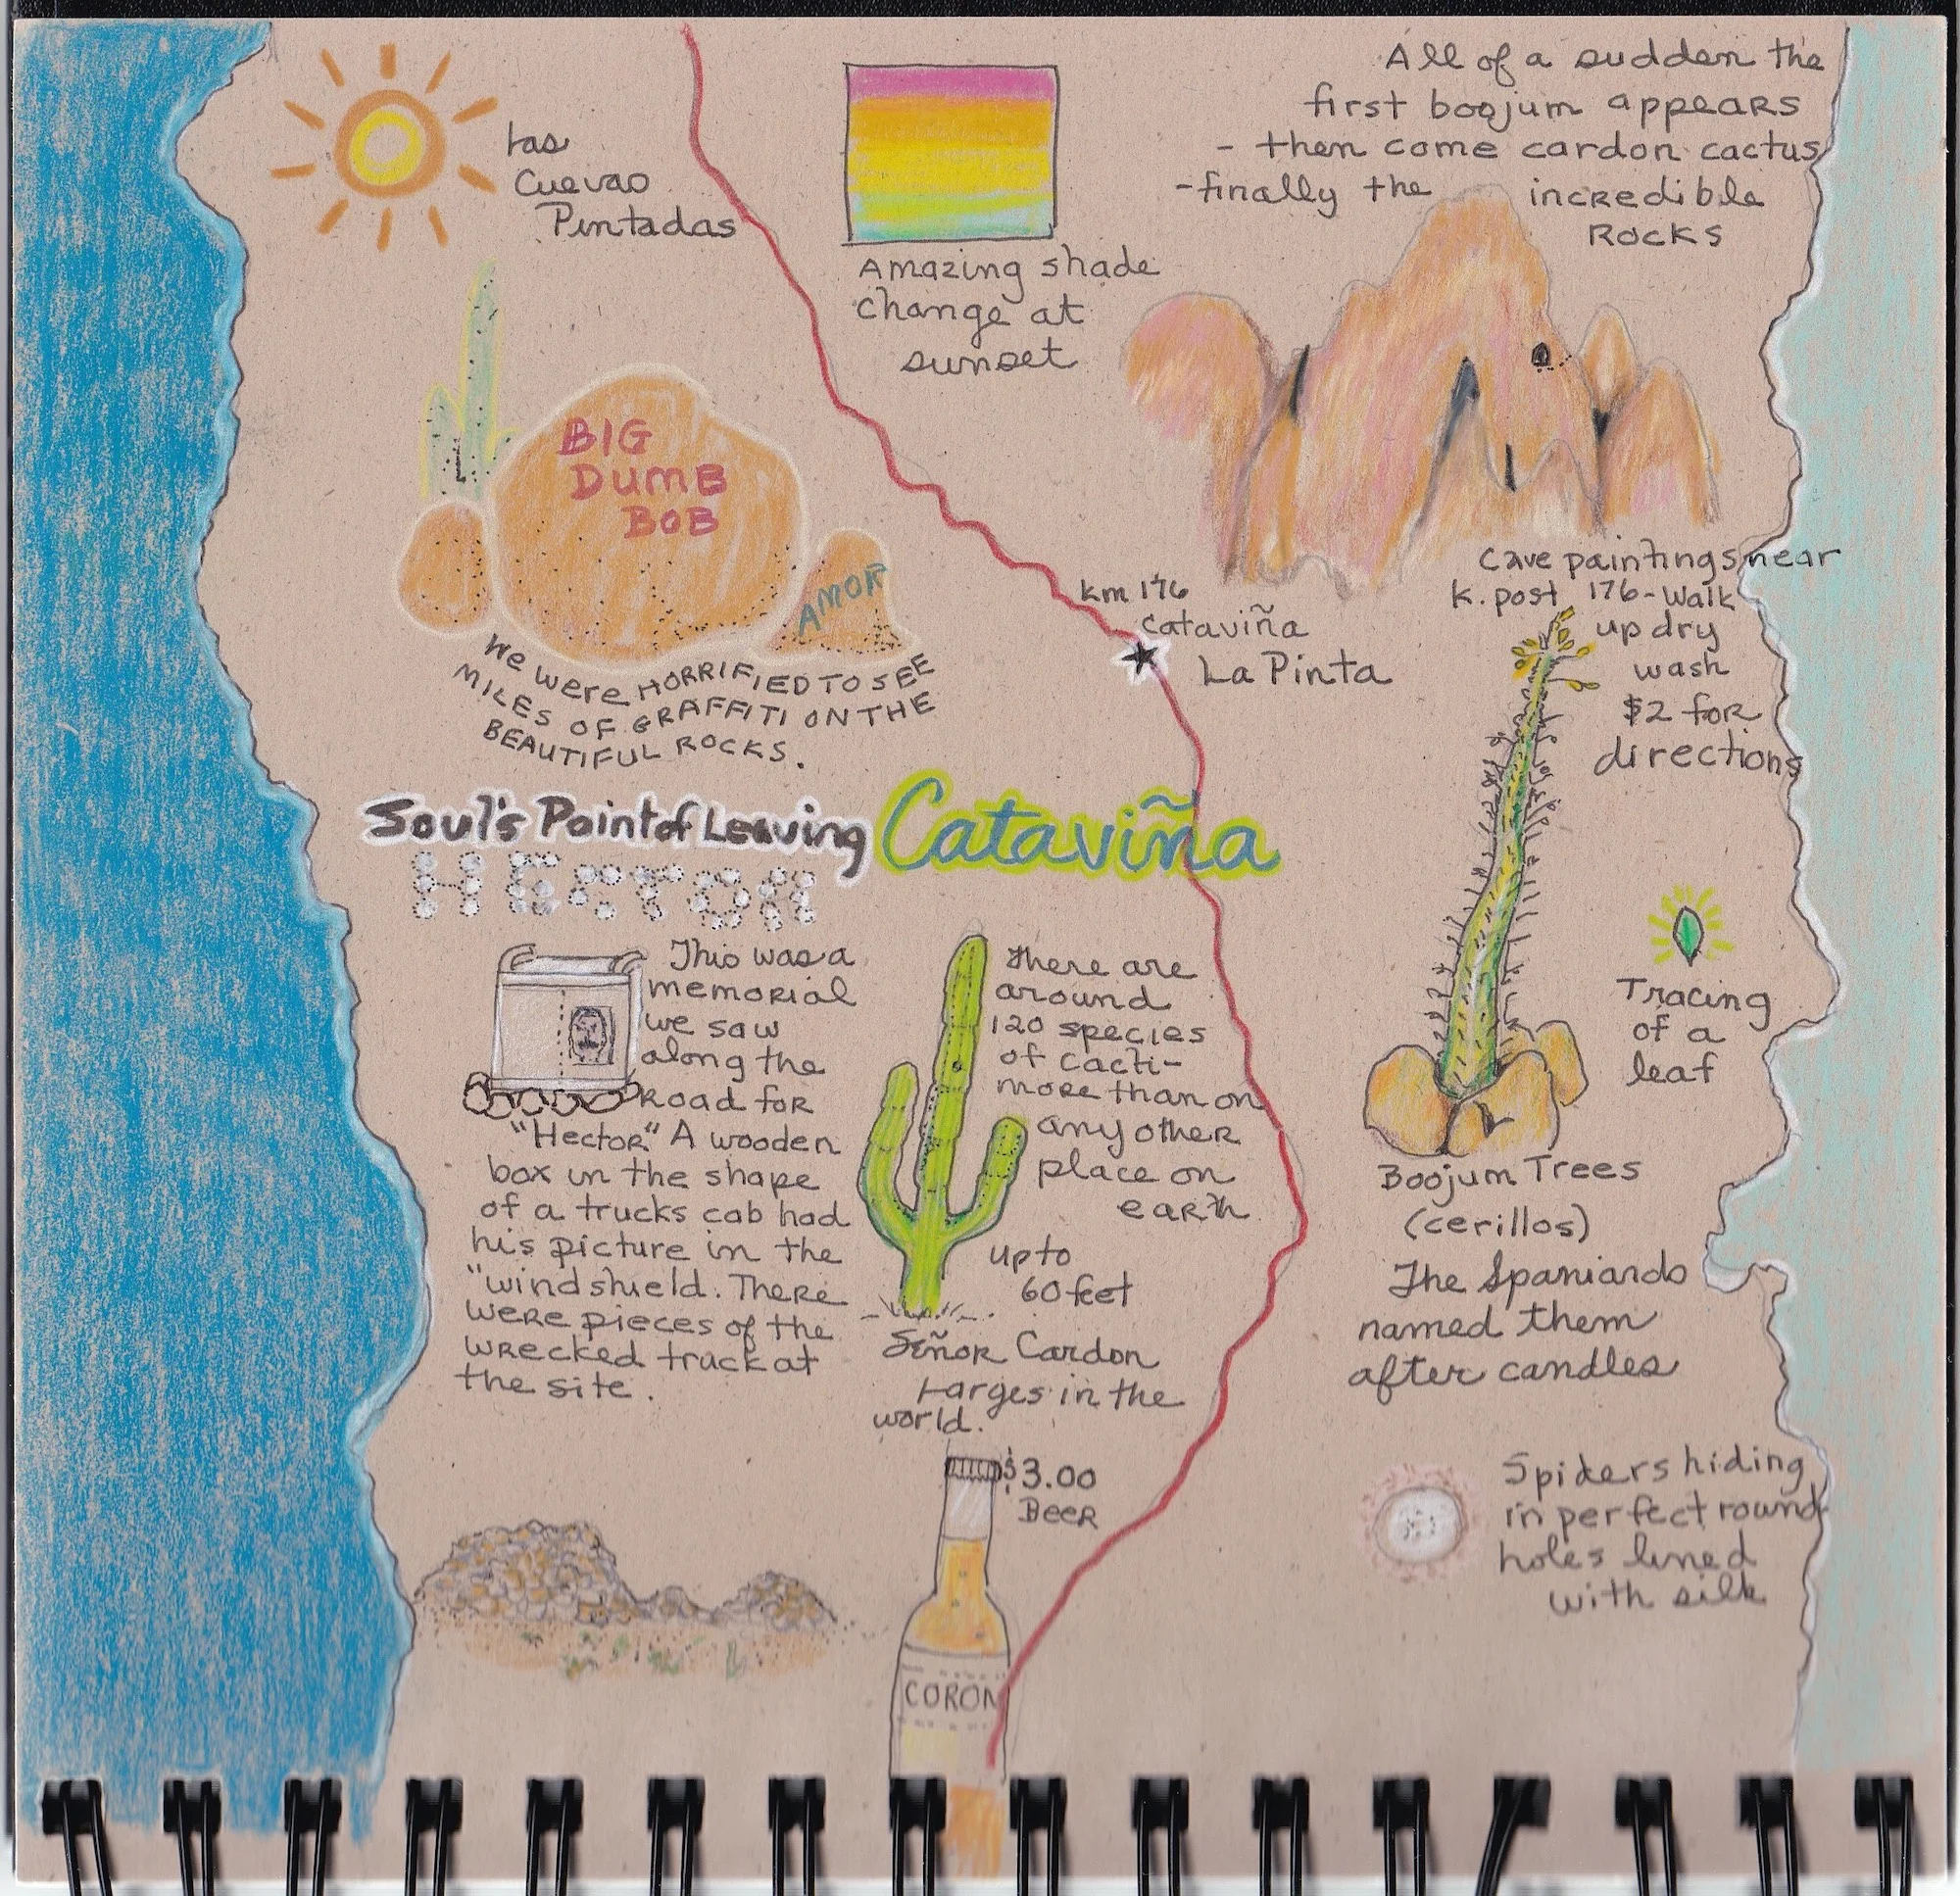 Las
Cuevas
Pintadas
Amazing shade
change at
sunset
All of a sudden the
first boojum appears
- then come cardon cactus
- finally the incredible
ROCKS
BIG
DUMB
BOB
AMOR
We were HORRIFIED TO SEE
MILES OF GRAFFITI ON THE
BEAUTIFUL ROCKS.
km 176
Cataviña
La Pinta
Cave paintings near
k. post 176 - Walk
up dry
wash
$2 for
directions
Soul's Point of Leaving
Cataviña
HECTOR
This was a
memorial
we saw
along the
Road for
"Hector" A wooden
box in the shape
of a trucks cab had
his picture in the
"windshield. There
were pieces of the
wrecked truck at
the site.
There are
around
120 species
of cacti-
more than on
any other
place on
earth
up to
60 feet
Señor Cardon
Larges in the
world.
$3.00
Beer
CORON
Tracing
of a
leaf
Boojum Trees
(cerillos)
The Spaniards
named them
after candles
Spiders hiding
in perfect round
holes lined
with silk